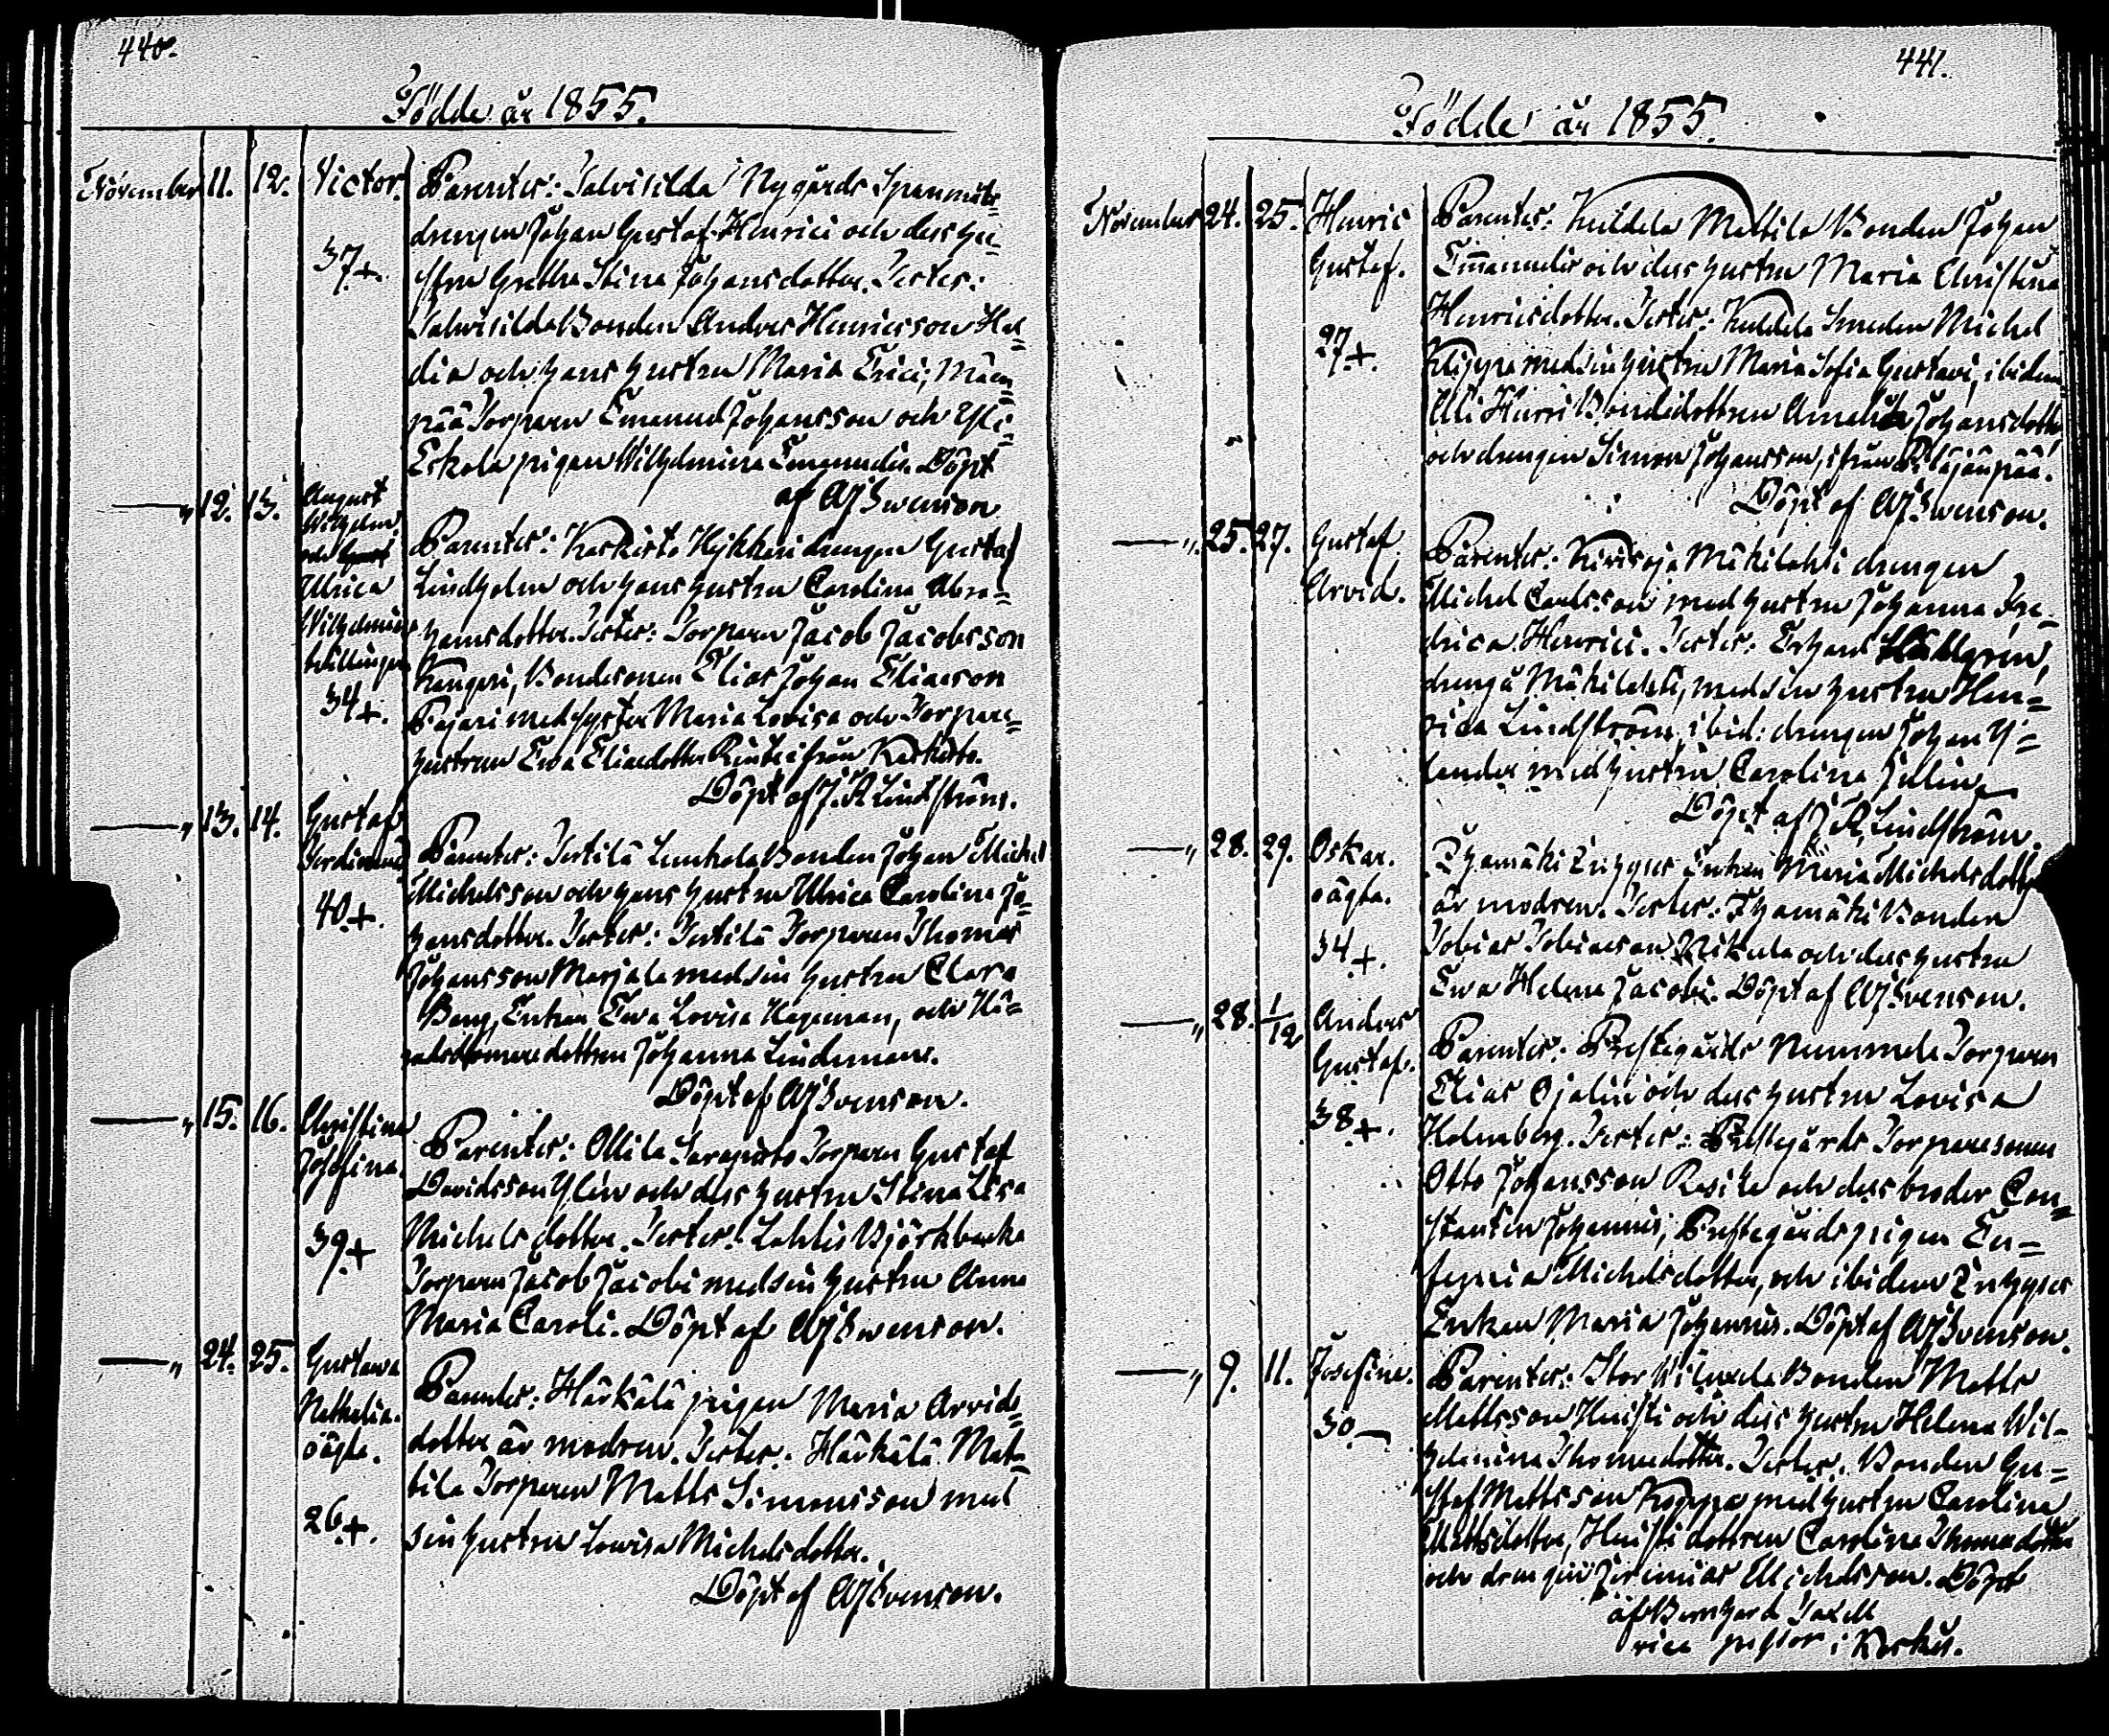 440.
Födde år 1855.
November 11. 12. Victor. Parentes: Salvisilda Nygårds Spanmåls-
drengen Johan Gustaf Henrici och dess hu-
37+. stru Gretha Stina Johansdotter. Testes:
Salvisilda Bonden Anders Henricsson Hel-
dia och hans hustru Maria Erici; Män-
pää Torparen Emanuel Johansson och Yli-
Eskola pigan Wilhelmina Emanuelis. Döpt
af AJSwenson
— " 12. 13. August
Wilhelm
och
Ulrica
Wilhelmina
tvillingar
34+.
Parentes: Karkisto Hykkeri drengen Gustaf
Lindholm och hans hustru Carolina Abra-
hamsdotter. Testes: Torparen Jacob Jacobsson
Kangari, Bondesonen Elias Johan Eliasson
Pajari med syster Maria Lovisa och Torpare-
hustrun Ewa Eliaedotter från Karkisto.
Döpt af J. R. Lindström.
— " 13. 14. Gustaf
Ferdinand
40+.
Parentes: Tertilä Lenkola Bonden Johan Michel
Michelsson och hans hustru Ulrica Carolina Jo-
hansdotter. Testes: Tertilä Torparen Thomas
Johansson Marjala med sin hustru Clara
Berg, Enkan Ewa Lovisa Hageman, och Hä-
radsdomaredottren Johanna Lindeman.
Döpt af AJSvenson.
— " 15. 16. Christina
Josefina.
39+
Parentes: Ollila Torparen Gustaf
Davidsson Ylén och dess hustru Stina Lisa
Michelsdotter. Testes: Lahlis Björkbacka
Torparen Jacob Jacobi med sin hustru Anna
Maria Caroli. Döpt af AJSwenson.
— " 24. 25. Gustava
Nathalia.
oägta.
26+.
Parentes: Härkälä pigan Maria Arvids-
dotter är modren. Testes: Härkälä Mat-
tila Torparen Matts Simonsson med
sin hustru Lowisa Michelsdotter.
Döpt af AJSvenson.
441.
Födde år 1855.
November 24. 25. Henric
Gustaf.
27+.
Parentes: Kuldela Mattila Bonden Johan
Emanuelis och dess hustru Maria Christina
Henricsdotter. Testes: Kuldela Smeden Michel
med sin hustru Maria Sofia Gustavi, ibidem
Ali Hurri Bondedottren Amalia Johansdotter
och drengen Simon Johansson, från
Döpt af AJSwenson.
— " 25. 27. Gustaf
Arvid.
Parentes: Kirisoja Mäkilahti drengen
Michel Carlsson med hustru Johanna Fre-
drica Henrici. Testes: Erhard Hällgren,
dreng å Mäkilahti, med sin hustru Hen-
rica Lindström, ibid: drengen Johan Y-
lander med hustru Carolina Jullin.
Döpt af J R Lindström.
— " 28. 29. Oskar.
oägta.
34+.
Ihamäki Inhyses Enkan Maria Michelsdotter
är modren. Testes: Ihamäki Bonden
Tobias Tobiasson Nikula och dess hustru
Ewa Helena Jacobi. Döpt af AJSvenson.
— " 28. 1/12 Anders
Gustaf.
38+.
Parentes: Prestegårds Nummela Torparen
Elias Ojalin och dess hustru Lovisa
Holmberg. Testes: Prestegårds Torparesonen
Otto Johansson och dess broder Con-
stantin Johannis; Prestegårdspigan Eu-
femia Michelsdotter, och ibidem Inhyses
Enkan Maria Johannis. Döpt af AJSvenson.
— " 9. 11. Josefina.
30.—
Parentes: Stor Bonden Matts
Mattsson Heusti och dess hustru Helena Wil-
helmina Thomaedotter. Testes: Bonden Gu-
staf Mattsson Koppa med hustru Carolina
Mattsdotter, Heusti dottren Carolina Thomaedotter
och drengen Jeremias Michelsson. Döpt
af Bernhard Taxell
vice pastor i Karkku.